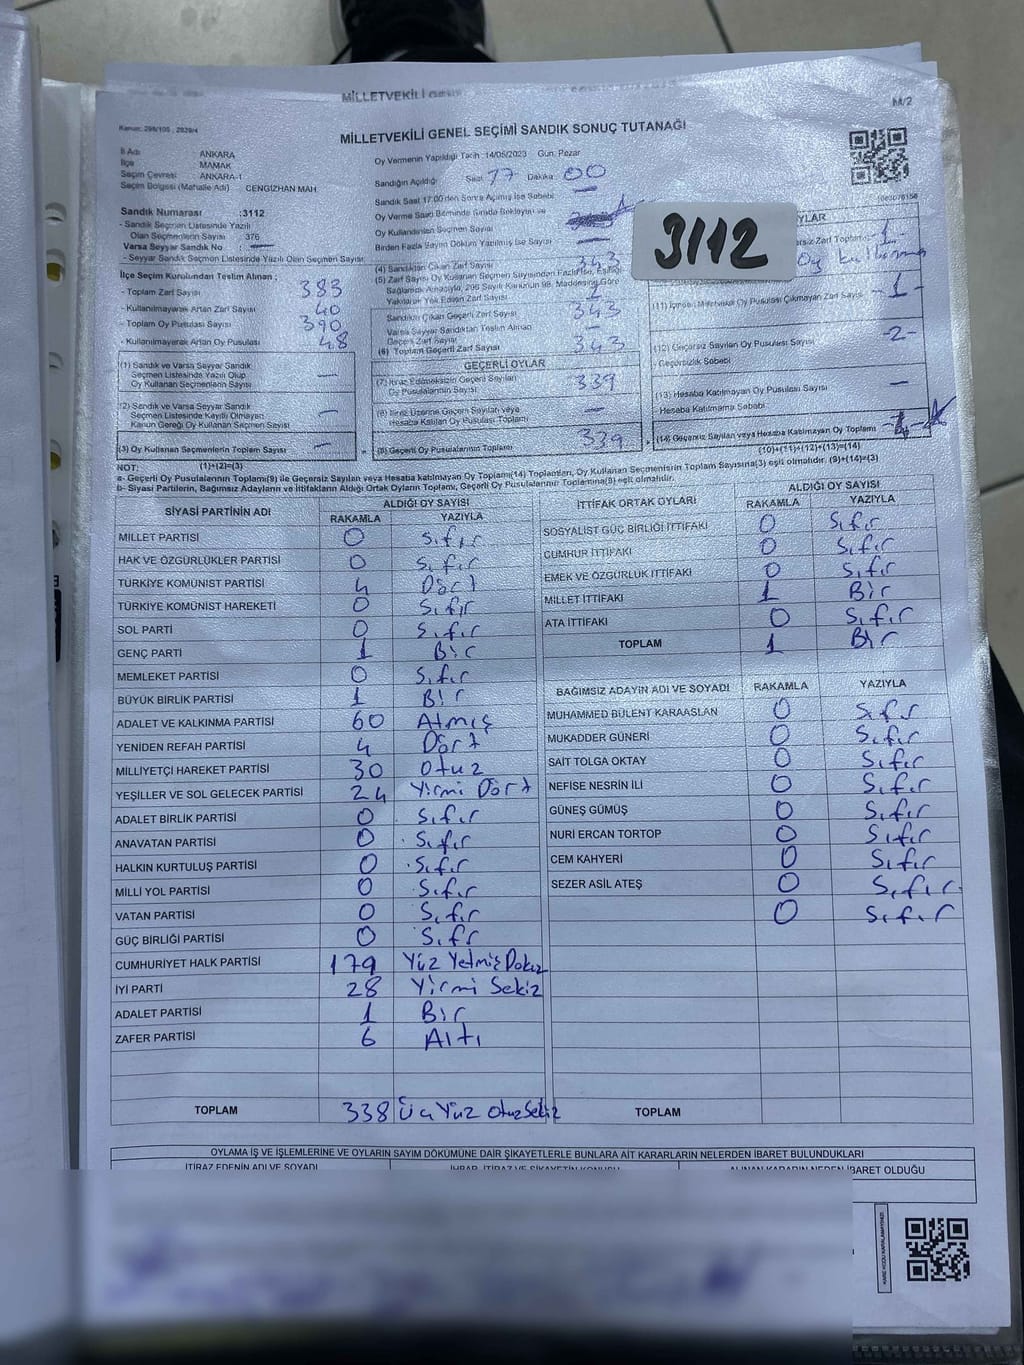 MİLLETVEKİLİ
M/2
MİLLETVEKİLİ GENEL SEÇİMİ SANDIK SONUÇ TUTANAĞI
İl Adı ANKARA
İlçe MAMAK
Seçim Çevresi ANKARA-1
Seçim Bölgesi (Mahalle Adı) CENGİZHAN MAH.
Oy Vermenin Yapıldığı Tarih :14/05/2023 Gün: Pazar
Sandığın Açıldığı Saat 17 Dakika: 00
Sandık Saat 17:00'den Sonra Açılmış İse Sebebi
Oy Kullandırılan Seçmen Sayısı
Birden Fazla Sayım Döküm Yapılmış İse Sayısı
3112
Sandık Numarası :3112
- Sandık Seçmen Listesinde Yazılı
Olan Seçmenlerin Sayısı : 376
Varsa Seyyar Sandık No : —
- Seyyar Sandık Seçmen Listesinde Yazılı Olan Seçmen Sayısı:
İlçe Seçim Kurulundan Teslim Alınan ;
- Toplam Zarf Sayısı 383
- Kullanılmayarak Artan Zarf Sayısı 40
- Toplam Oy Pusulası Sayısı 390
- Kullanılmayarak Artan Oy Pusulası 48
(1) Sandık ve Varsa Seyyar Sandık
Seçmen Listesinde Yazılı Olup
Oy Kullanan Seçmenlerin Sayısı —
(2) Sandık ve Varsa Seyyar Sandık
Seçmen Listesinde Kaydı Olmayan
Kanun Gereği Oy Kullanan Seçmenlerin Sayısı —
(3) Oy Kullanan Seçmenlerin Toplam Sayısı —
(1)+(2)=(3)
(4) Sandıktan Çıkan Zarf Sayısı 343
Sandıktan Çıkan Geçerli Zarf Sayısı 343
Varsa Seyyar Sandıktan Teslim Alınan
Geçerli Zarf Sayısı —
(6) Toplam Geçerli Zarf Sayısı 343
GEÇERLİ OYLAR
(7) İtiraz Edilmeksizin Geçerli Sayılan
Oy Pusulalarının Sayısı 339
(8) İtiraz Üzerine Geçerli Sayılan veya
Hesaba Katılan Oy Pusulası Toplamı —
(9) Geçerli Oy Pusulalarının Toplamı 339
(12) Geçersiz Sayılan Oy Pusulası Sayısı -2-
Geçersizlik Sebebi
(13) Hesaba Katılmayan Oy Pusulası Sayısı —
- Hesaba Katılmama Sebebi
(14) Geçersiz Sayılan veya Hesaba Katılmayan Oy Toplamı
(10)+(11)+(12)+(13)=(14)
NOT:
a- Geçerli Oy Pusulalarının Toplamı(9) ile Geçersiz Sayılan veya Hesaba katılmayan Oy Toplamı(14) Toplamları, Oy Kullanan Seçmenlerin Toplam Sayısına(3) eşit olmalıdır. (9)+(14)=(3)
b- Siyasi Partilerin, Bağımsız Adayların ve İttifakların Aldığı Ortak Oyların Toplamı, Geçerli Oy Pusulalarının Toplamına(9) eşit olmalıdır.
SİYASİ PARTİNİN ADI ALDIĞI OY SAYISI
RAKAMLA YAZIYLA
MİLLET PARTİSİ 0 Sıfır
HAK VE ÖZGÜRLÜKLER PARTİSİ 0 Sıfır
TÜRKİYE KOMÜNİST PARTİSİ 4 Dört
TÜRKİYE KOMÜNİST HAREKETİ 0 Sıfır
SOL PARTİ 0 Sıfır
GENÇ PARTİ 1 Bir
MEMLEKET PARTİSİ 0 Sıfır
BÜYÜK BİRLİK PARTİSİ 1 Bir
ADALET VE KALKINMA PARTİSİ 60 Atmış
YENİDEN REFAH PARTİSİ 4 Dört
MİLLİYETÇİ HAREKET PARTİSİ 30 Otuz
YEŞİLLER VE SOL GELECEK PARTİSİ 24 Yirmi Dört
ADALET BİRLİK PARTİSİ 0 Sıfır
ANAVATAN PARTİSİ 0 Sıfır
HALKIN KURTULUŞ PARTİSİ 0 Sıfır
MİLLİ YOL PARTİSİ 0 Sıfır
VATAN PARTİSİ 0 Sıfır
GÜÇ BİRLİĞİ PARTİSİ 0 Sıfr
CUMHURİYET HALK PARTİSİ 179 Yüz Yetmiş Dokuz
İYİ PARTİ 28 Yirmi Sekiz
ADALET PARTİSİ 1 Bir
ZAFER PARTİSİ 6 Altı
TOPLAM 338 Üç Yüz Otuz Sekiz
İTTİFAK ORTAK OYLARI ALDIĞI OY SAYISI
RAKAMLA YAZIYLA
SOSYALİST GÜÇ BİRLİĞİ İTTİFAKI 0 Sıfır
CUMHUR İTTİFAKI 0 Sıfır
EMEK VE ÖZGÜRLÜK İTTİFAKI 0 Sıfır
MİLLET İTTİFAKI 1 Bir
ATA İTTİFAKI 0 Sıfır
TOPLAM 1 Bir
BAĞIMSIZ ADAYIN ADI VE SOYADI RAKAMLA YAZIYLA
MUHAMMED BÜLENT KARAASLAN 0 Sıfır
MUKADDER GÜNERİ 0 Sıfır
SAİT TOLGA OKTAY 0 Sıfır
NEFİSE NESRİN İLİ 0 Sıfır
GÜNEŞ GÜMÜŞ 0 Sıfır
NURİ ERCAN TORTOP 0 Sıfır
CEM KAHYERİ 0 Sıfır
SEZER ASİL ATEŞ 0 Sıfır
0 Sıfır
TOPLAM
OYLAMA İŞ VE İŞLEMLERİNE VE OYLARIN SAYIM DÖKÜMÜNE DAİR ŞİKAYETLERLE BUNLARA AİT KARARLARIN NELERDEN İBARET BULUNDUKLARI
İTİRAZ EDENİN ADI VE SOYADI